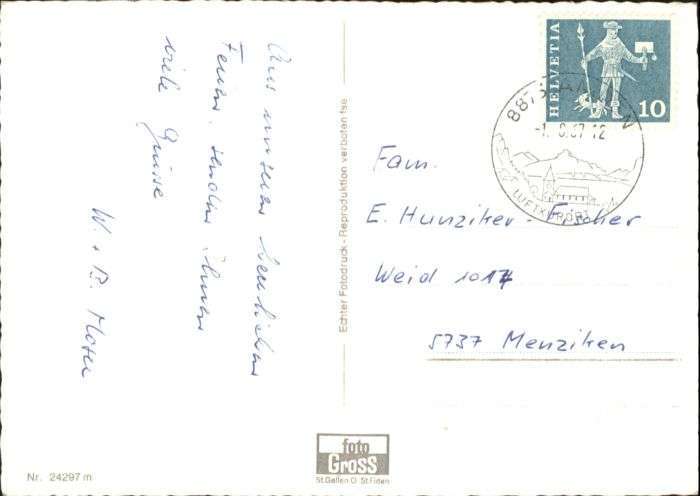 Aus unseren herrlichen
Ferien senden Ihnen
viele Grüsse
W. + B. Moser
Echter Fotodruck - Reproduktion verboten
HELVETIA
10
LUFTKURORT
Fam.
E. Hunziker - Fischer
Weid 1017
5737 Menziken
foto
GROSS
St. Gallen O St. Fiden
Nr. 24297 m